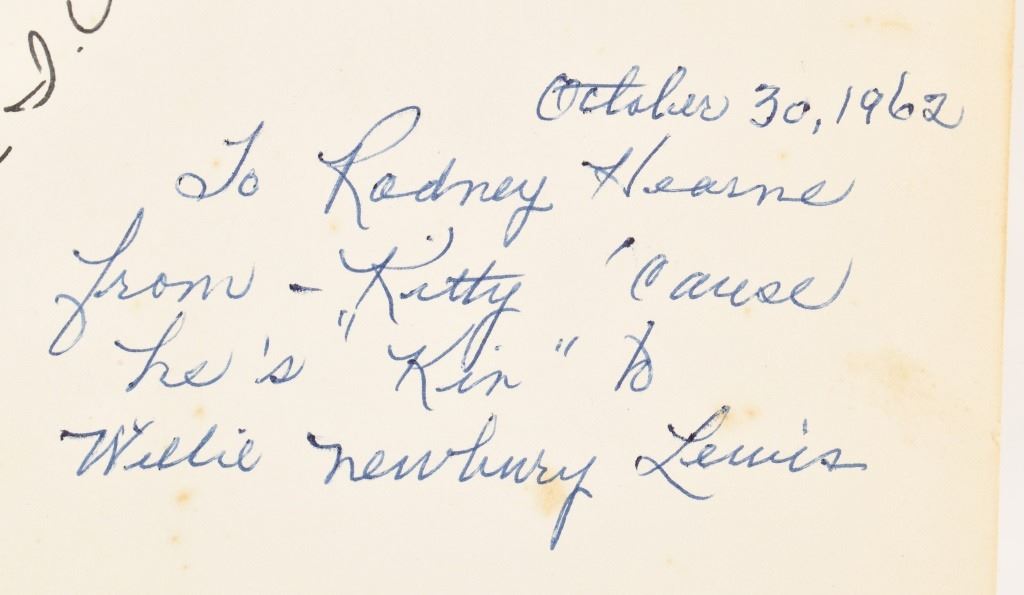 October 30, 1962
To Rodney Hearne
from - Kitty 'cause
he's "Kin" to
Willie Newbury Lewis